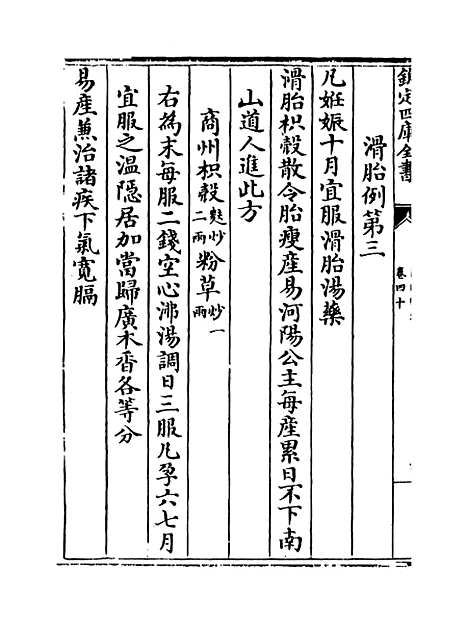 欽定四庫全書
卷四十
滑胎例第三
凡姙娠十月宜服滑胎湯藥
滑胎枳殼散令胎瘦産易河陽公主每産累日不下南
山道人進此方
商州枳殼二兩麩炒粉草一兩炒
右為末每服二錢空心沸湯調日三服凡孕六七月
宜服之温隠居加當歸廣木香各等分
易産兼治諸疾下氣寛膈